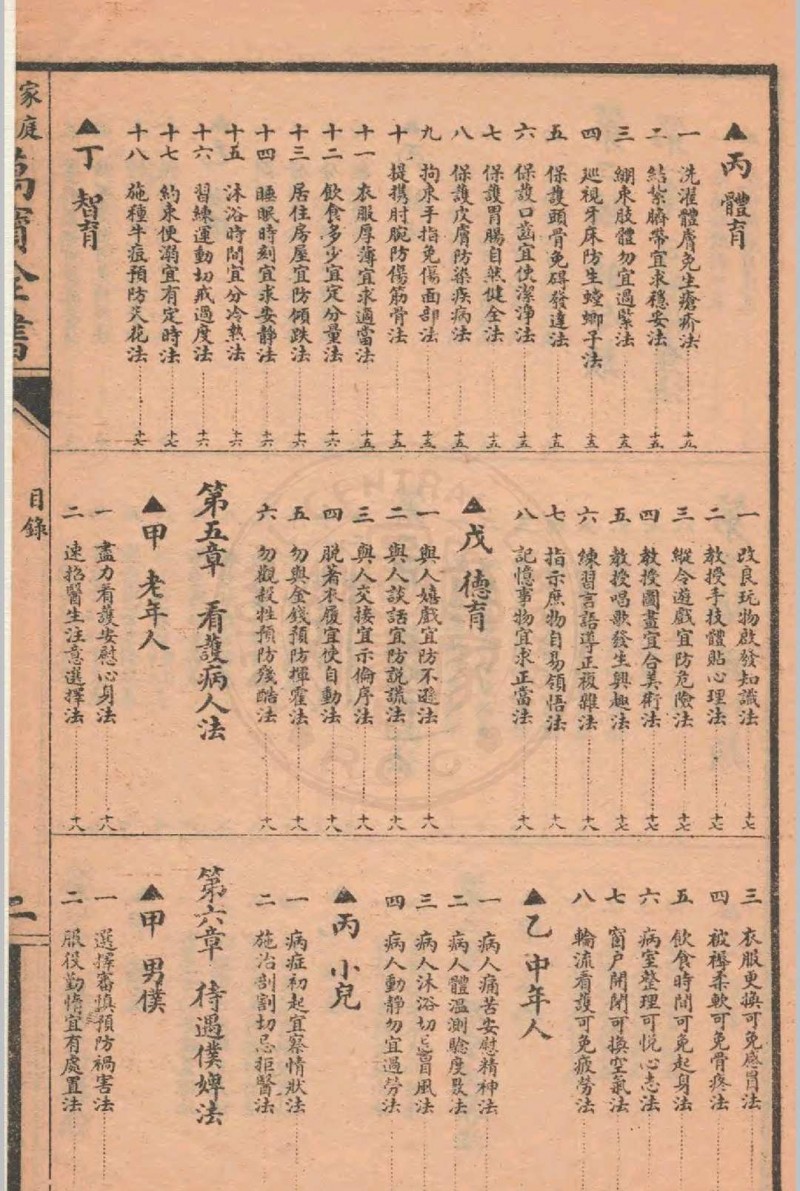 ▲丙 體育
一 洗濯體膚免生瘡疥法 十五
二 結紮臍帶宜求穩妥法 十五
三 綳束肢體勿宜過緊法 十五
四 巡視牙床防生螳螂子法 十五
五 保護頭骨免碍發達法 十五
六 保護口齒宜使潔淨法 十五
七 保護胃腸自然健全法 十五
八 保護皮膚防染疾病法 十五
九 拘束手指免傷面部法 十五
十 提携肘腕防傷筋骨法 十五
十一 衣服厚薄宜求適當法 十五
十二 飲食多少宜定分量法 十六
十三 居住房屋宜防傾跌法 十六
十四 睡眠時刻宜求安静法 十六
十五 沐浴時間宜分冷熱法 十六
十六 習練運動切戒過度法 十六
十七 約束便溺宜有定時法 十七
十八 施種牛痘預防天花法 十七
▲丁 智育
一 改良玩物啟發知識法 十七
二 教授手技體貼心理法 十七
三 縱令遊戲宜防危險法 十七
四 教授圖畫宜合美術法 十七
五 教授唱歌發生興趣法 十七
六 練習言語導正複雜法 十八
七 指示庶物自易領悟法 十八
八 記憶事物宜求正當法 十八
▲戊 德育
一 與人嬉戲宜防不遜法 十八
二 與人談話宜防説謊法 十八
三 與人交接宜示倫序法 十八
四 脱著衣履宜使自動法 十八
五 勿與金錢預防揮霍法 十八
六 勿觀殺牲預防殘酷法 十八
第五章 看護病人法
▲甲 老年人
一 盡力看護安慰心身法 十八
二 速招醫生注意選擇法 十八
三 衣服更換可免感冒法
四 被褥柔軟可免骨疼法
五 飲食時間可免起身法
六 病室整理可悦心志法
七 窗户開閉可換空氣法
八 輪流看護可免疲勞法
▲乙 中年人
一 病人痛苦安慰精神法
二 病人體温測驗度數法
三 病人沐浴切忌冒風法
四 病人動靜勿宜過勞法
▲丙 小兒
一 病症初起宜察情狀法
二 施治剖割切忌拒醫法
第六章 待遇僕婢法
▲甲 男僕
一 選擇審慎預防禍害法
二 服役勤惰宜有處置法
家庭萬寶全書
目錄
二